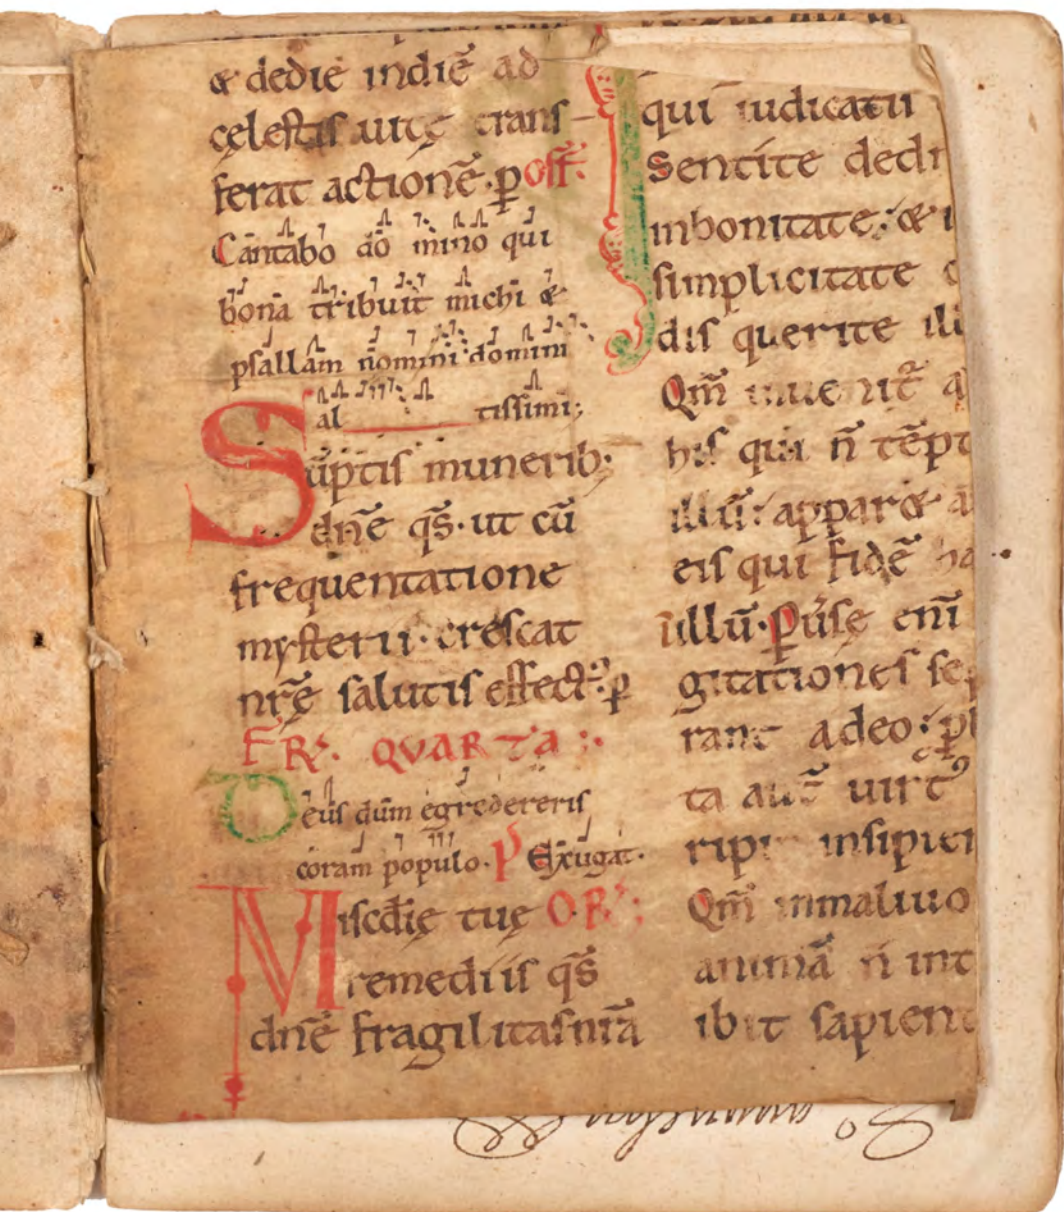 & dedie indiē ad
cęlestis uitę trans-
ferat actionē·p off̄:
Cantabo dō mino qui
bona tribuit michi &
psallam nomini domini
al tissimi;
Sūptis munerib;
dn̄e q̄s·ut cū
frequentatione
mysterii·crescat
nr̄ę salutis effect᷒:p
FR̄. QVARTA;·
Deus dum egredereris
coram populo·p Exurgat·
Misc̄dię tuę OR̄;
remediis q̄s
dn̄e fragilitasnr̄a
qui iudicatis
Sentite ded
inbonitate:& i
simplicitate c
dis querite illū
Qm̄ inuenit᷑ a
his qui n̄ tēpt
illū:appar& a
eis qui fidē ha
illū·Puersę enī
gitationes sep
rant adeo:p
ta aut̄ uirt᷒
ripit insipien
Qm̄ inmaliuo
animā n̄ int
ibit sapient